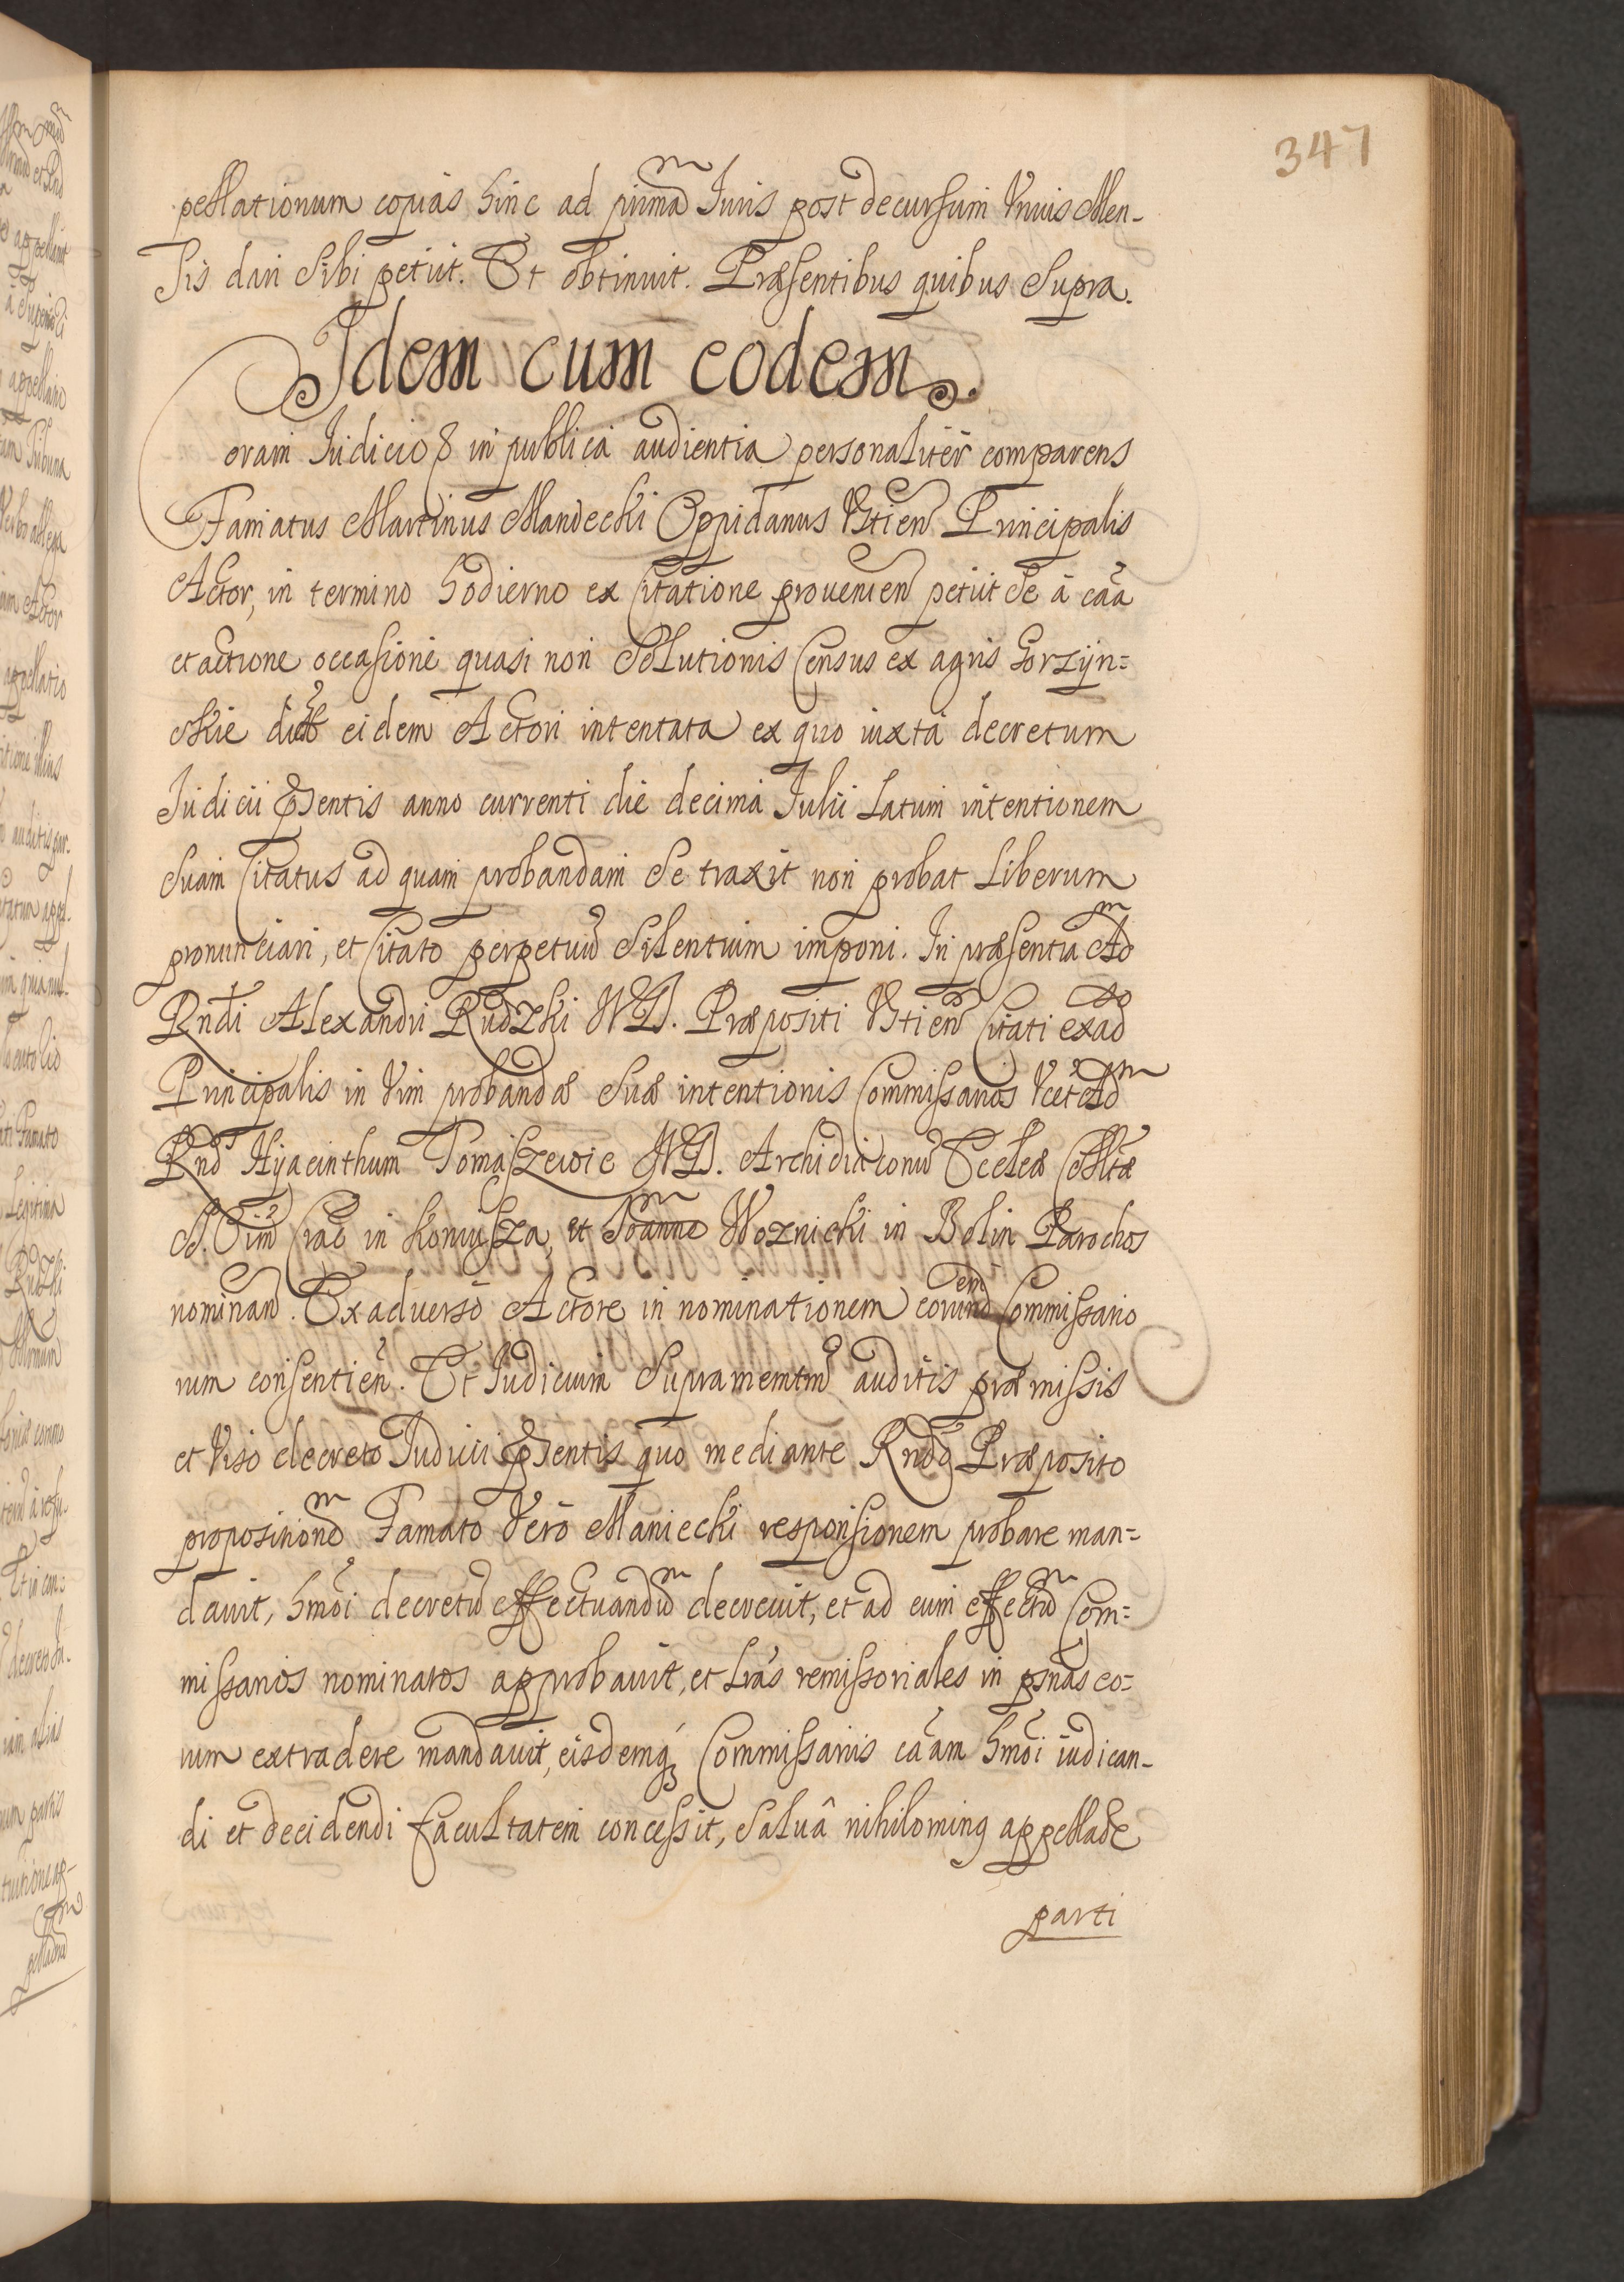 347
pellationum copias hinc ad primã Iuris post decursum Vnius Men-
sis dari Sibi petiit. Et obtinuit. Præsentibus quibus Supra.
Idem cum eodem.
Coram Iudicio in publica audientia personaliter comparens
Famatus Martinus Mandecki Oppidanus Vstien Principalis
Actor, in termino hodierno ex Citatione prouenien petiit Se à caã
et actione occasione quasi non Solutionis Census ex agris Gorzyn=
skie dict eidem Actori intentata ex quo iuxta decretum
Iudicii pñtis anno currenti die decima Iulii Latum intentionem
Suam Citatus ad quam probandam Se traxit non probat Liberum
pronunciari, et Citato perpetuũ Silentium imponi. In præsentia Ad
Rndi Alexandri Rudzki NB. Præpositi Vstien Citati ex ad
Principalis in Vim probandæ Suæ intentionis Commissarios Vcet Ad
Rnd Hyacinthum Tomaszewic NB. Archidiaconũ Eccleæ Colltæ
S. Oim Crac in Koniusza, et Joanne Woznicki in Bolin Parochos
nominan. Ex aduerso Actore in nominationem eorund Commissario
rum consentien. Et Iudicium Supramemtm auditis præmissis
et Viso decreto Iudicii pñtis quo mediante Rndo Præposito
propositionẽ Famato Vero Maniecki responsionem probare man=
dauit, hmoi decretũ effectuandũ decreuit, et ad eum effectũ Com=
missarios nominatos approbauit, et Lrãs remissoriales in psñas eo=
rum extradere mandauit, eisdemq Commissariis caãm hmoi iudican-
di et decidendi facultatem concessit, Saluâ nihilominq appellaõe
parti